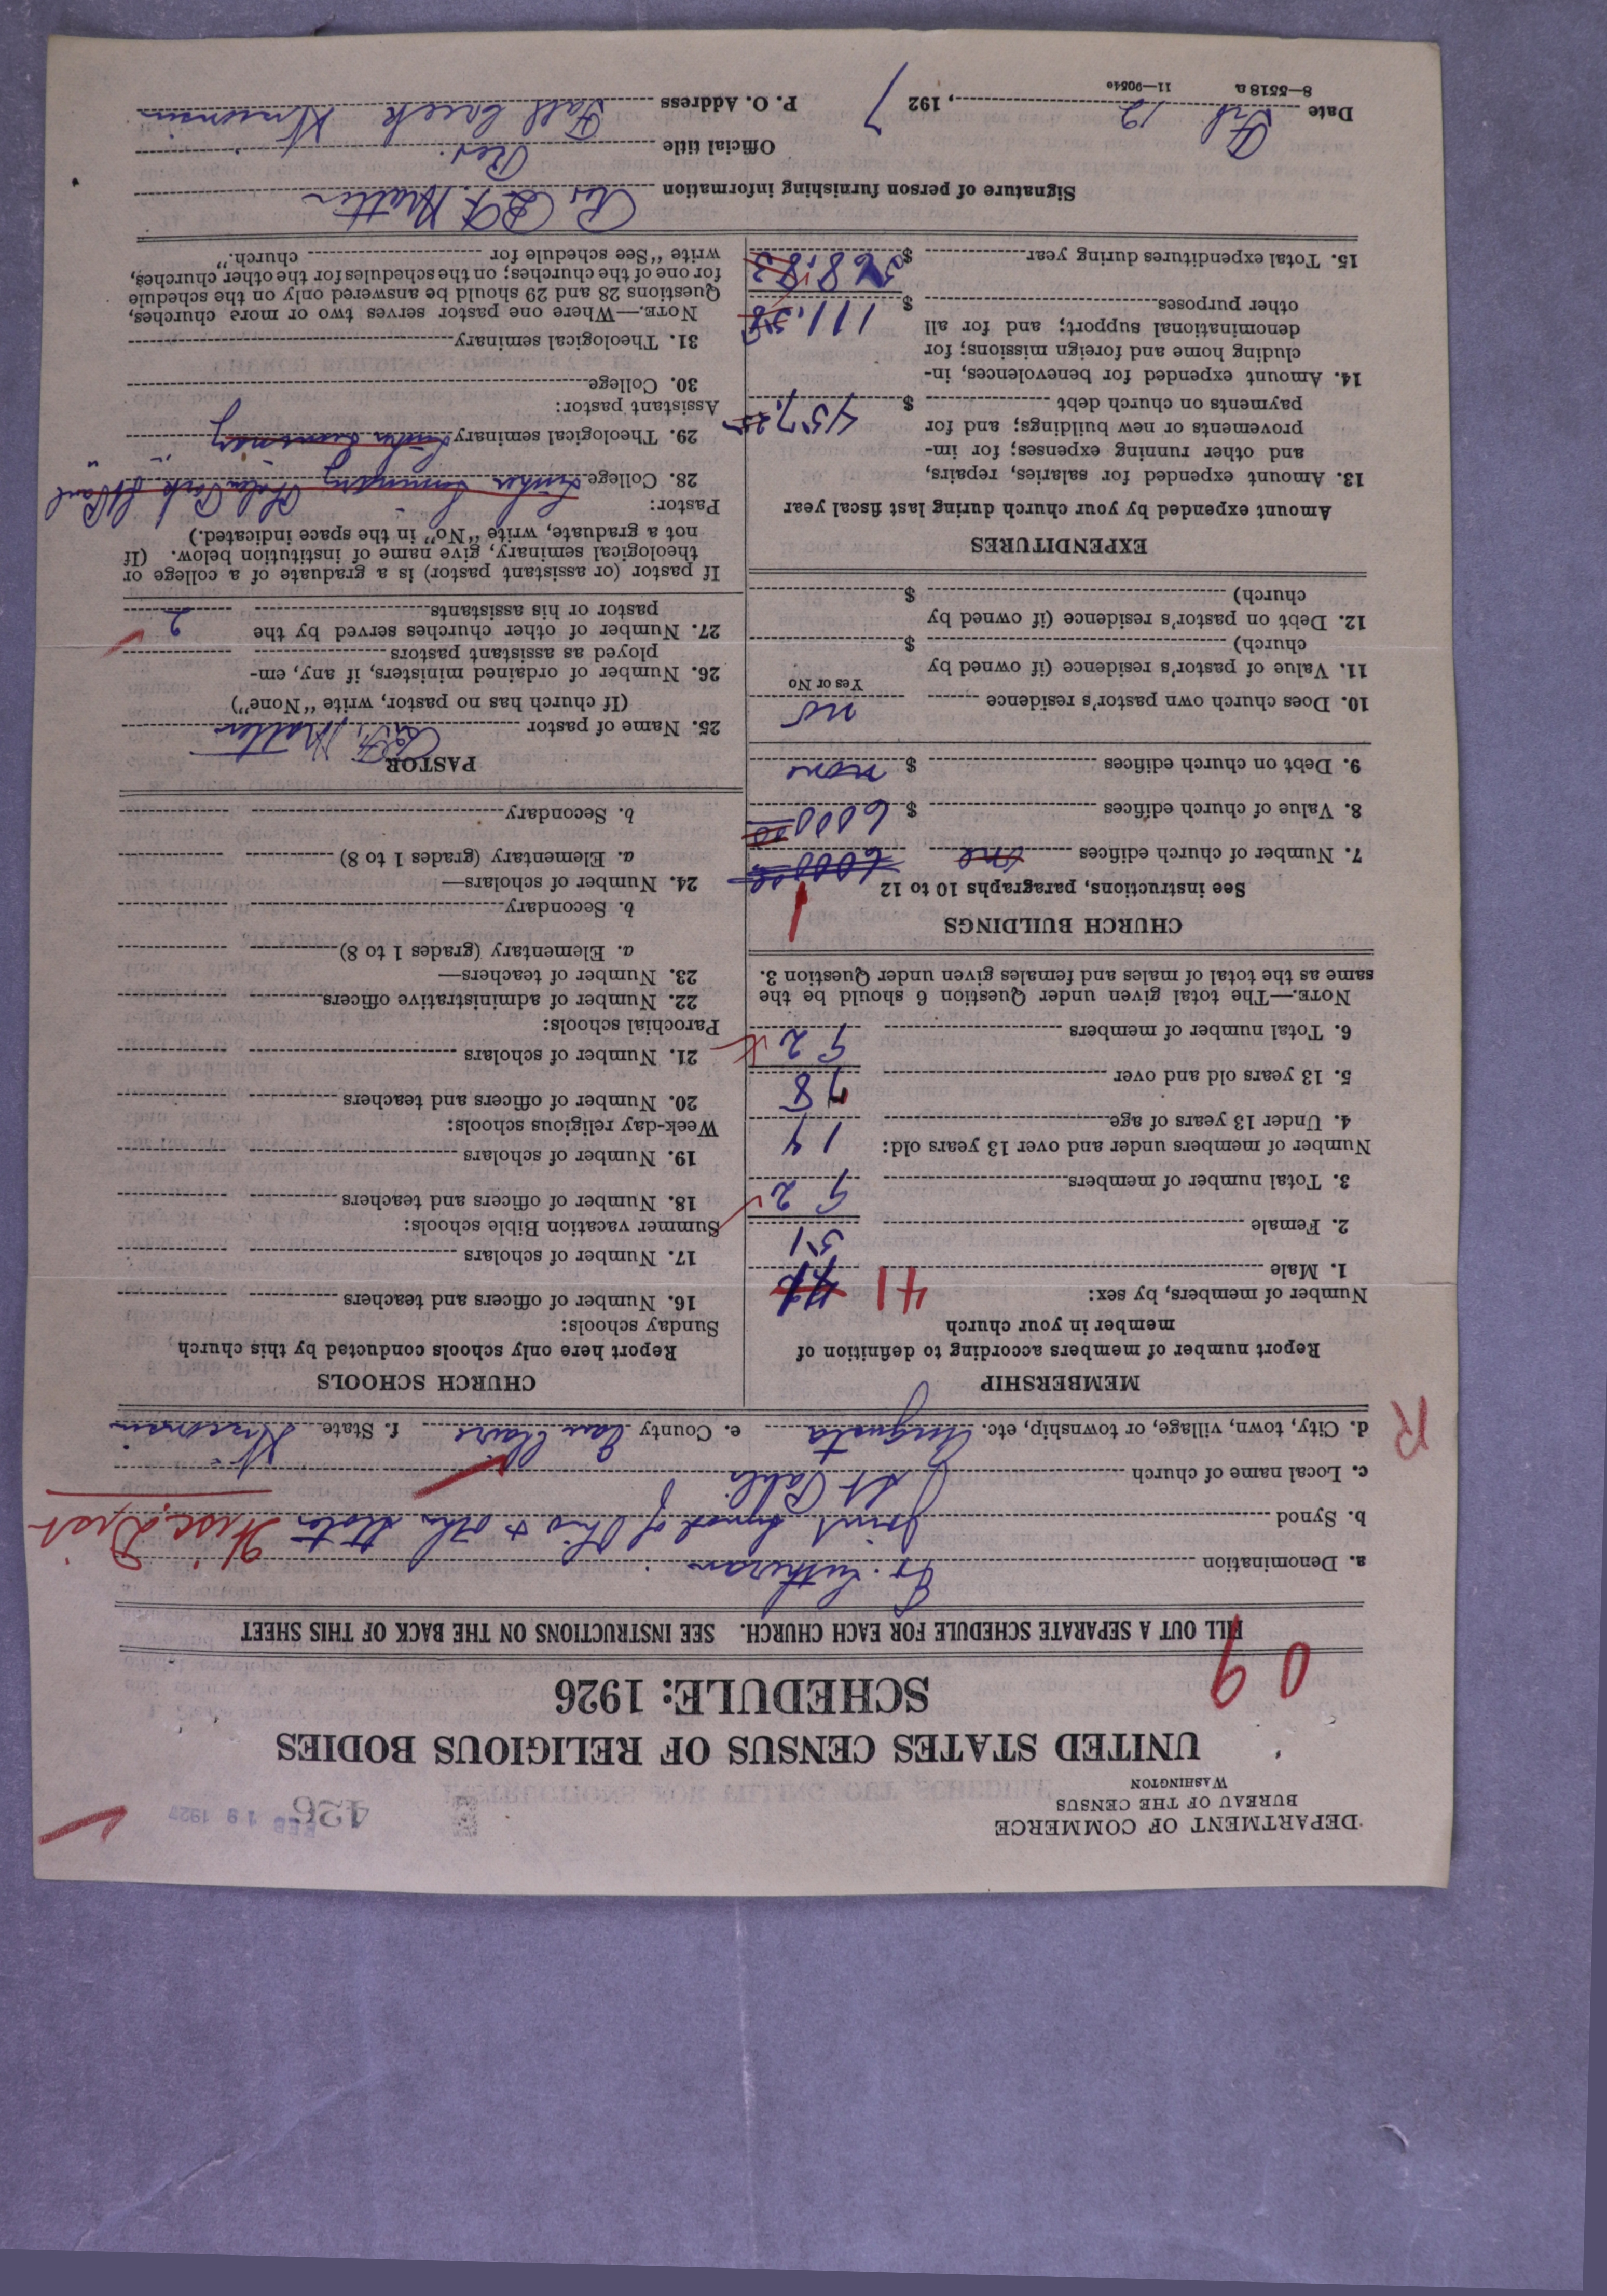 DEPARTMENT OF COMMERCE
BUREAU OF THE CENSUS
WASHINGTON
426
FEB 19 1927
UNITED STATES CENSUS OF RELIGIOUS BODIES
SCHEDULE: 1926
09
FILL OUT A SEPARATE SCHEDULE FOR EACH CHURCH. SEE INSTRUCTIONS ON THE BACK OF THIS SHEET
a. Denomination Ev. Lutheran
b. Synod Joint Synod of Ohio & other States Wisc. Dist
c. Local name of church St Pauls
d. City, town, village, or township, etc. Augusta e. County Eau Claire f. State Wisconsin
R
MEMBERSHIP
Report number of members according to definition of
member in your church
Number of members, by sex:
1. Male 41
2. Female 51
3. Total number of members 92
Number of members under and over 13 years old:
4. Under 13 years of age 14
5. 13 years old and over 78
6. Total number of members 92
NOTE.—The total given under Question 6 should be the
same as the total of males and females given under Question 3.
CHURCH BUILDINGS
See instructions, paragraphs 10 to 12
7. Number of church edifices one 6000.00 1
8. Value of church edifices $ 6000.00
9. Debt on church edifices $ none
10. Does church own pastor's residence no
Yes or No
11. Value of pastor's residence (if owned by
church) $
12. Debt on pastor's residence (if owned by
church) $
EXPENDITURES
Amount expended by your church during last fiscal year
13. Amount expended for salaries, repairs,
and other running expenses; for im-
provements or new buildings; and for
payments on church debt $ 457.25
14. Amount expended for benevolences, in-
cluding home and foreign missions; for
denominational support; and for all
other purposes $ 111.58
15. Total expenditures during year $ 568.83
CHURCH SCHOOLS
Report here only schools conducted by this church
Sunday schools:
16. Number of officers and teachers
17. Number of scholars
Summer vacation Bible schools:
18. Number of officers and teachers
19. Number of scholars
Week-day religious schools:
20. Number of officers and teachers
21. Number of scholars
Parochial schools:
22. Number of administrative officers
23. Number of teachers—
a. Elementary (grades 1 to 8)
b. Secondary
24. Number of scholars—
a. Elementary (grades 1 to 8)
b. Secondary
PASTOR
25. Name of pastor
(If church has no pastor, write "None")
26. Number of ordained ministers, if any, em-
ployed as assistant pastors
27. Number of other churches served by the
pastor or his assistants 2
If pastor (or assistant pastor) is a graduate of a college or
theological seminary, give name of institution below. (If
not a graduate, write "No" in the space indicated.)
Pastor:
28. College Luther Seminary Phalen Park St Paul
29. Theological seminary Luther Seminary " "
Assistant pastor:
30. College
31. Theological seminary
NOTE.—Where one pastor serves two or more churches,
Questions 28 and 29 should be answered only on the schedule
for one of the churches; on the schedules for the other churches,
write "See schedule for church."
Signature of person furnishing information
Official title Rev.
Date Feb. 12, 1927 P. O. Address Fall Creek Wisconsin
8—5518 a 11—9054c